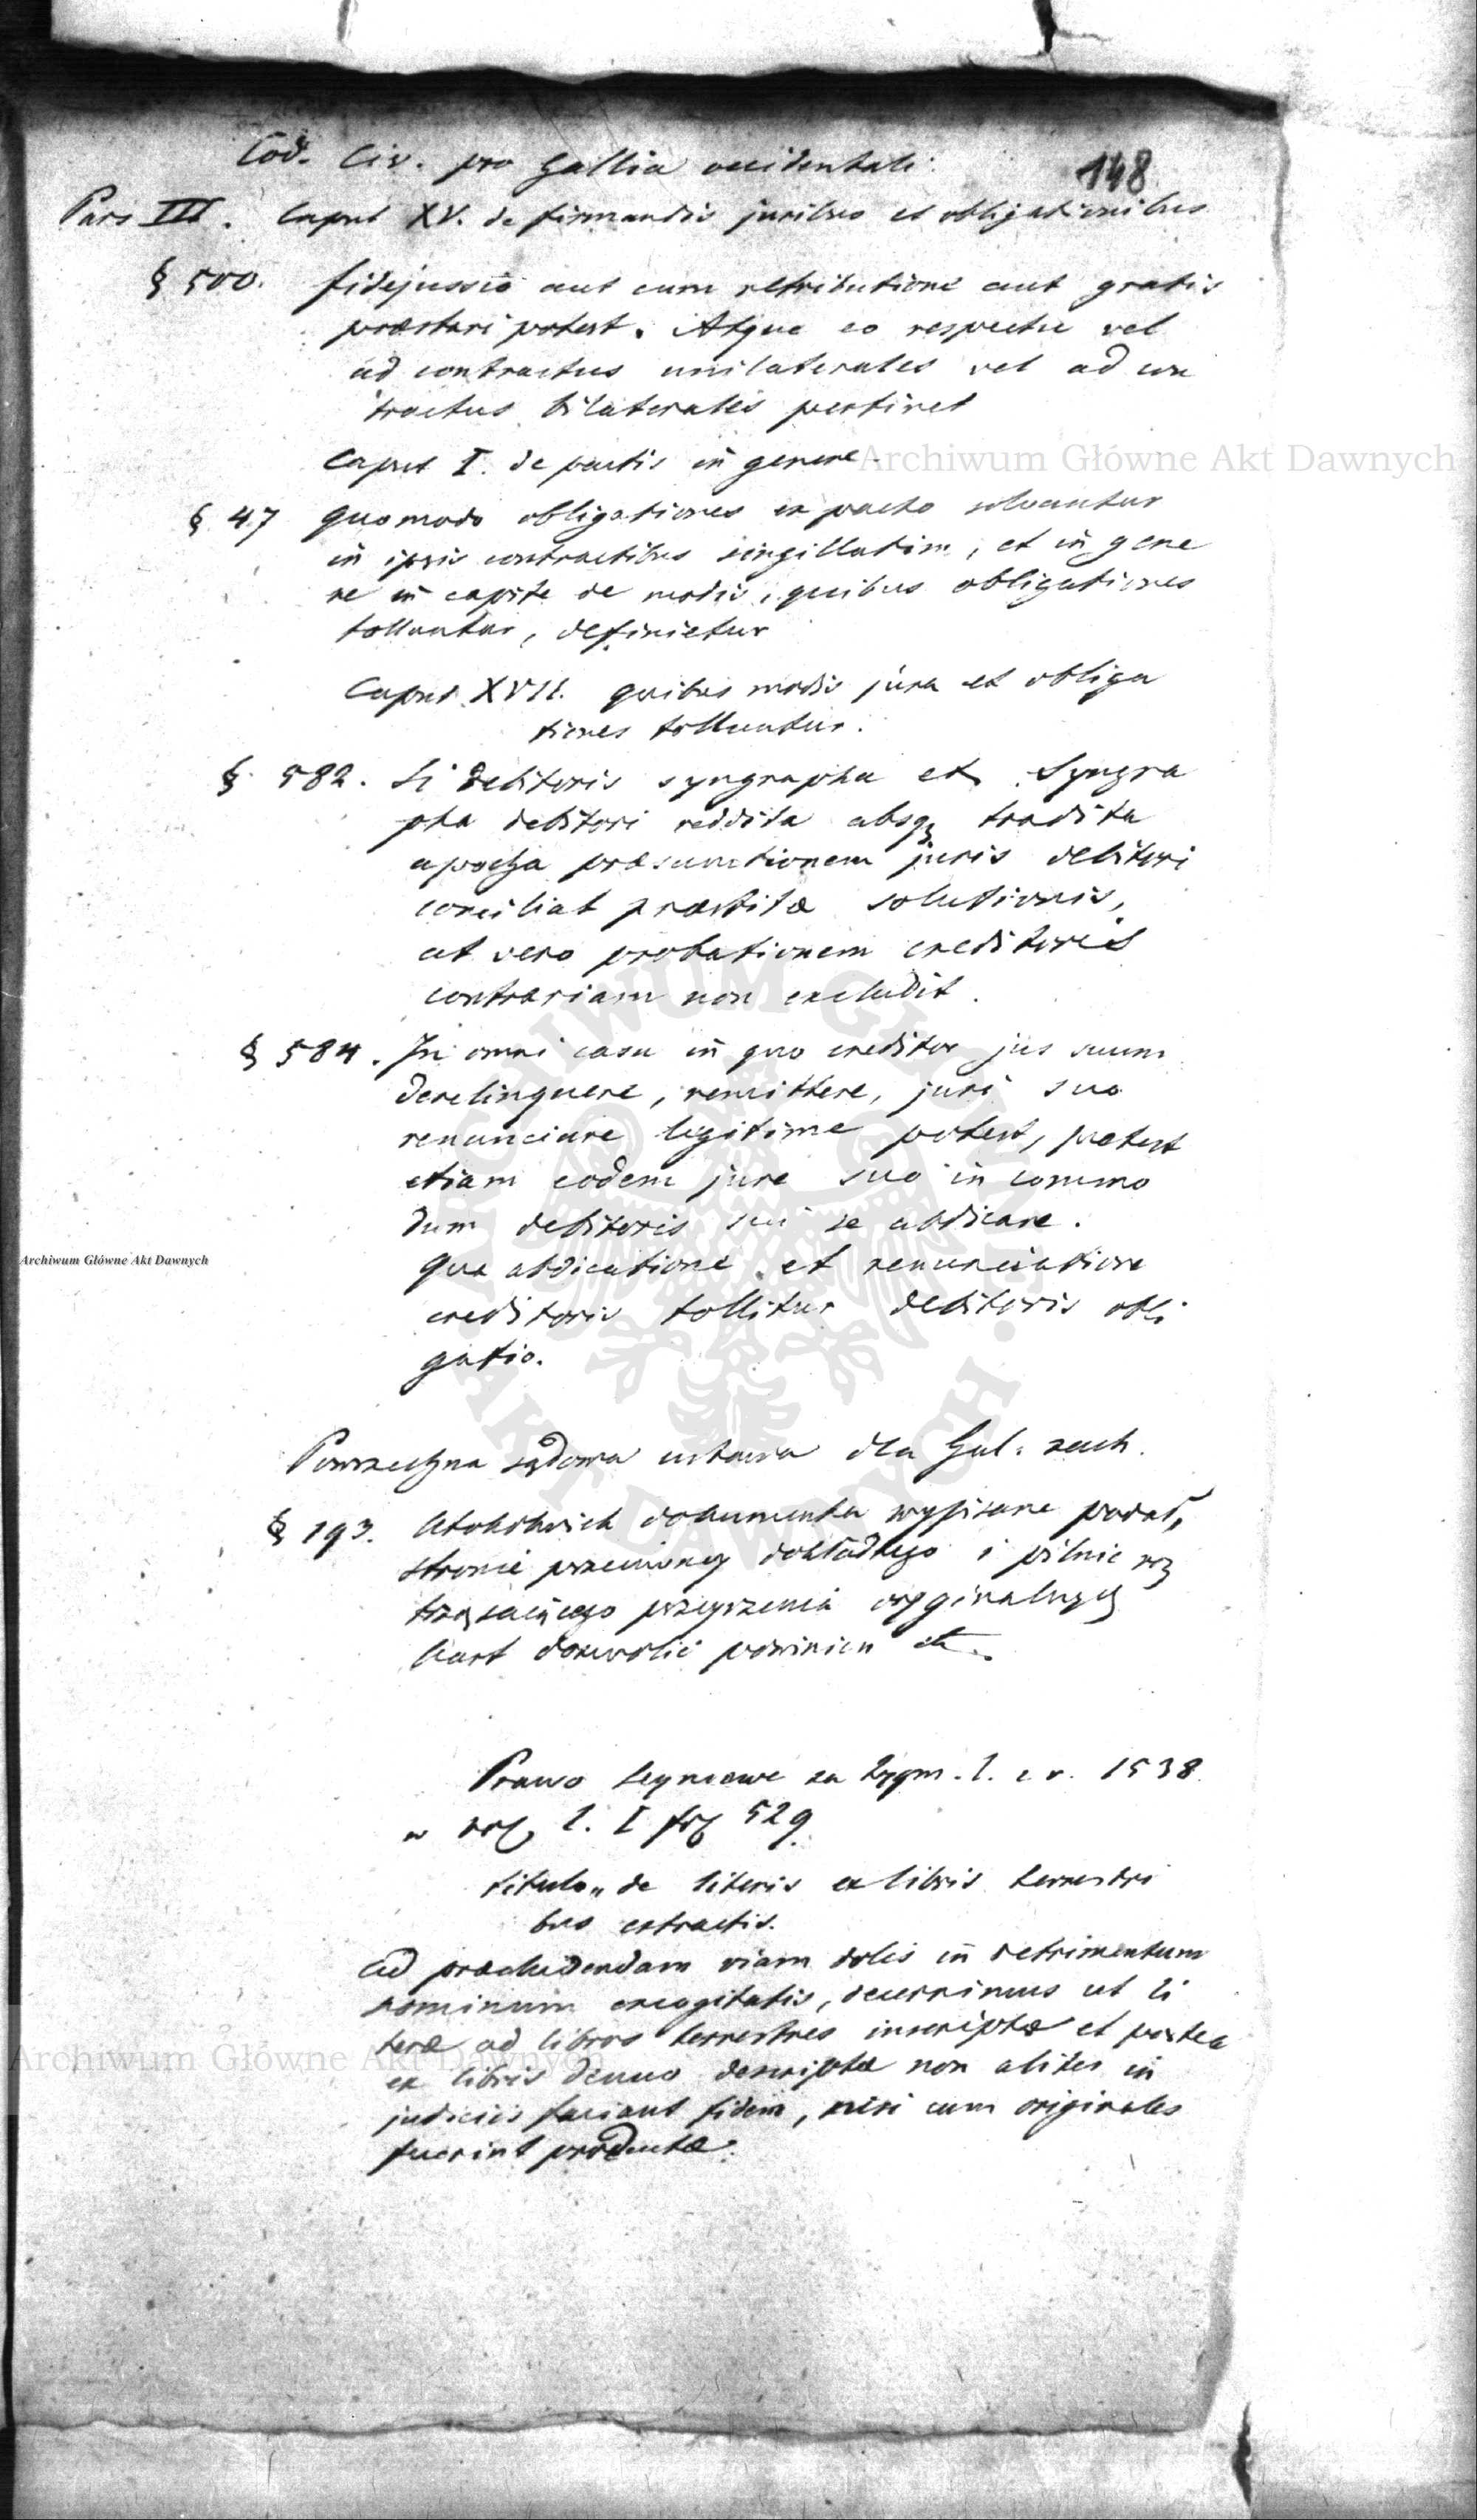 Cod. Civ. pro Gallia occidentali.
148
Pars III. Caput XV. de firmandis juribus et obligationibus
§ 500. fidejussio aut cum retributione aut gratis
præstari potest. Atque eo respectu vel
ad contractus unilaterales vel ad con
tractus bilaterales pertinet
Caput I. de pactis in genere.
Archiwum Główne Akt Dawnych
§ 47 quomodo obligationes ex pacto solvantur
in ipsis contractibus singillatim, et in gene
re in capite de modis, quibus obligationes
tolluntur, definietur
Caput XVII. quibus modis jura et obliga
tiones tolluntur.
§. 582. Si debitoris syngrapha et Syngra
pha debitori reddita absq tradita
apocha præsumtionem juris debitori
conciliat præstitæ solutionis,
at vero probationem creditoris
contrariam non excludit.
§ 584. In omni casu in quo creditor jus suum
derelinquere, remittere, juri suo
renunciare legitime potest, potest
etiam eodem jure suo in commo
dum debitoris sui se abdicare.
Archiwum Główne Akt Dawnych
Qua abdicatione et renunciatione
creditoris tollitur debitoris obli
gatio.
ARCHIWUM GŁÓWNE AKT DAWNYCH
Powszechna sądowa ustawa dla Gal. zach.
§ 193. dokumenta wypisane podał,
stronie przeciwney dokładnego i pilnie roz
trząsaiącego przeyrzenia orygginalnych
kart dozwolić powinien etc.
Prawo seymowe za Zygm. I. z r. 1538.
w vol. l. I fol 529.
titulo „de literis ex libris terrestri
bus extractis.
Ad præcludendam viam dolis in detrimentum
hominum excogitatis, decernimus ut li
teræ ad libros terrestres inscriptæ et postea
Archiwum Główne Akt Dawnych
ex libris denuo descriptæ non aliter in
judiciis faciant fidem, nisi cum originales
fuerint productæ.